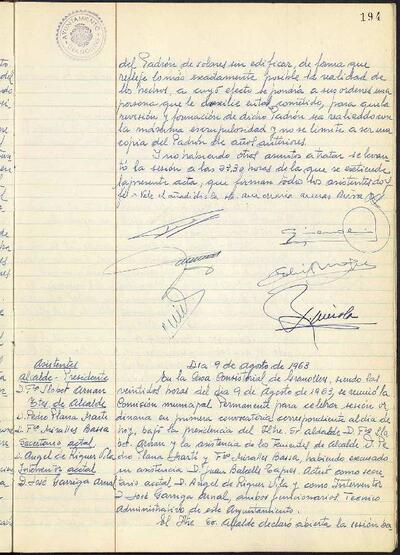 194
AYUNTAMIENTO
del Padrón de solares sin edificar, de forma que
refleje lo más exactamente posible la realidad de
los hechos, a cuyo efecto se pondría a sus órdenes una
persona que le auxilie en tal cometido, para que la
revisión y formación de dicho Padrón sea realizado con
la máxima escrupulosidad y no se limite a ser una
copia del Padrón de años anteriores.
Y no habiendo otros asuntos a tratar se levan-
tó la sesión a las 23,30 horas de la que se extiende
la presente acta, que firman todos los asistentes doy
fe = Vale el añadido
Asistentes
Alcalde-Presidente
D. Fco Llobet Arnan
Ttes. de Alcalde
D. Pedro Plana Martí
D. Fco Miralles Bassa
Secretario actal
D. Angel de Riquer Vila
Interventor actal
D. José Garriga Arnal
Dia 9 de agosto de 1963
En la Casa Consistorial de Granollers, siendo las
veintidos horas del día 9 de Agosto de 1963, se reunió la
Comisión municipal Permanente para celebrar sesión or-
dinaria en primera convocatoria correspondiente al día de
hoy, bajo la presidencia del Iltre. Sr. Alcalde D. Fco Llo-
bet Arnan y la asistencia de los Tenientes de Alcalde D. Pe-
dro Plana Martí y Fco Miralles Bassa, habiendo excusado
su asistencia D. Juan Batcells Actuó como secre-
tario actal D. Angel de Riquer Vila y como Interventor
D. José Garriga Arnal, ambos funcionarios Técnico
Administrativo de este Ayuntamiento.
El Iltre Sr. Alcalde declaró abierta la sesión da